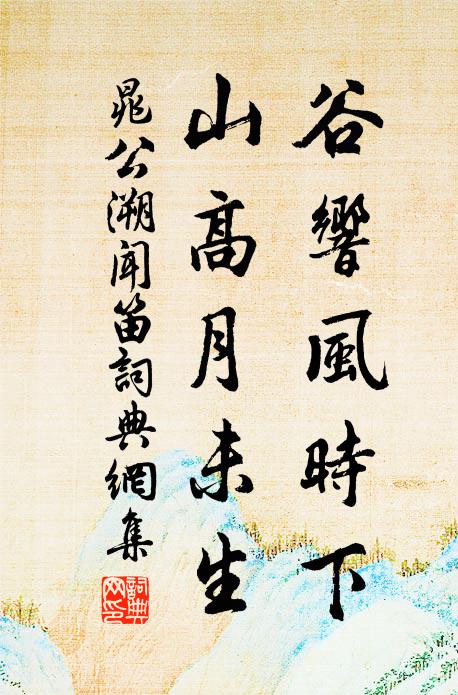 谷響風時下
山高月未生
晁公溯聞笛詞典網集
詞典
网印